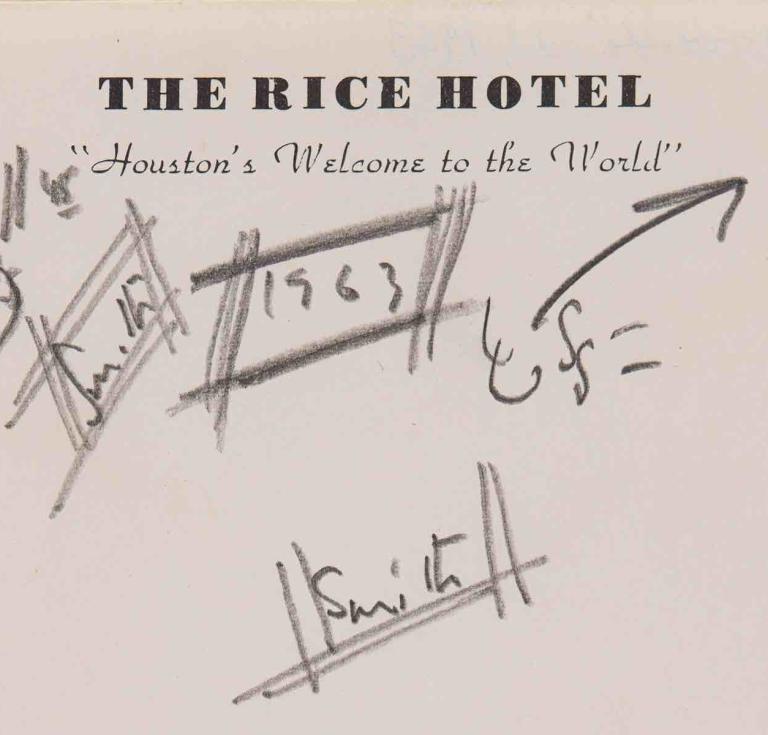 THE RICE HOTEL
"Houston's Welcome to the World"
Smith
1963
Smith